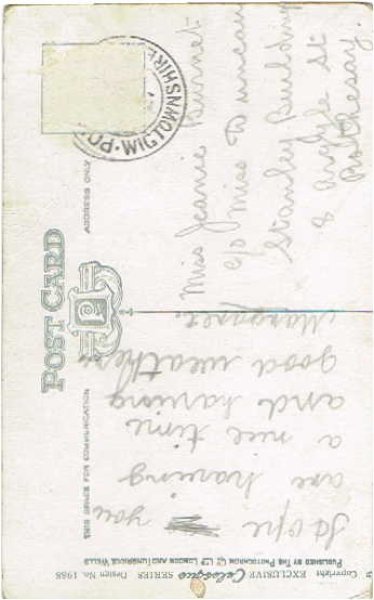 POST CARD
THIS SPACE FOR COMMUNICATION
ADDRESS ONLY
WIGTOWNSHIRE
Hope you
are having
a nice time
and having
good weather
Margaret.
Miss Jeanie Burnet
c/o Miss Duncan
Stanley Building
8 Argyle St
Rothesay.
PUBLISHED BY THE PHOTOCHROM CO LTD LONDON AND TUNBRIDGE WELLS
Copyright EXCLUSIVE Celesque SERIES Design No. 1988